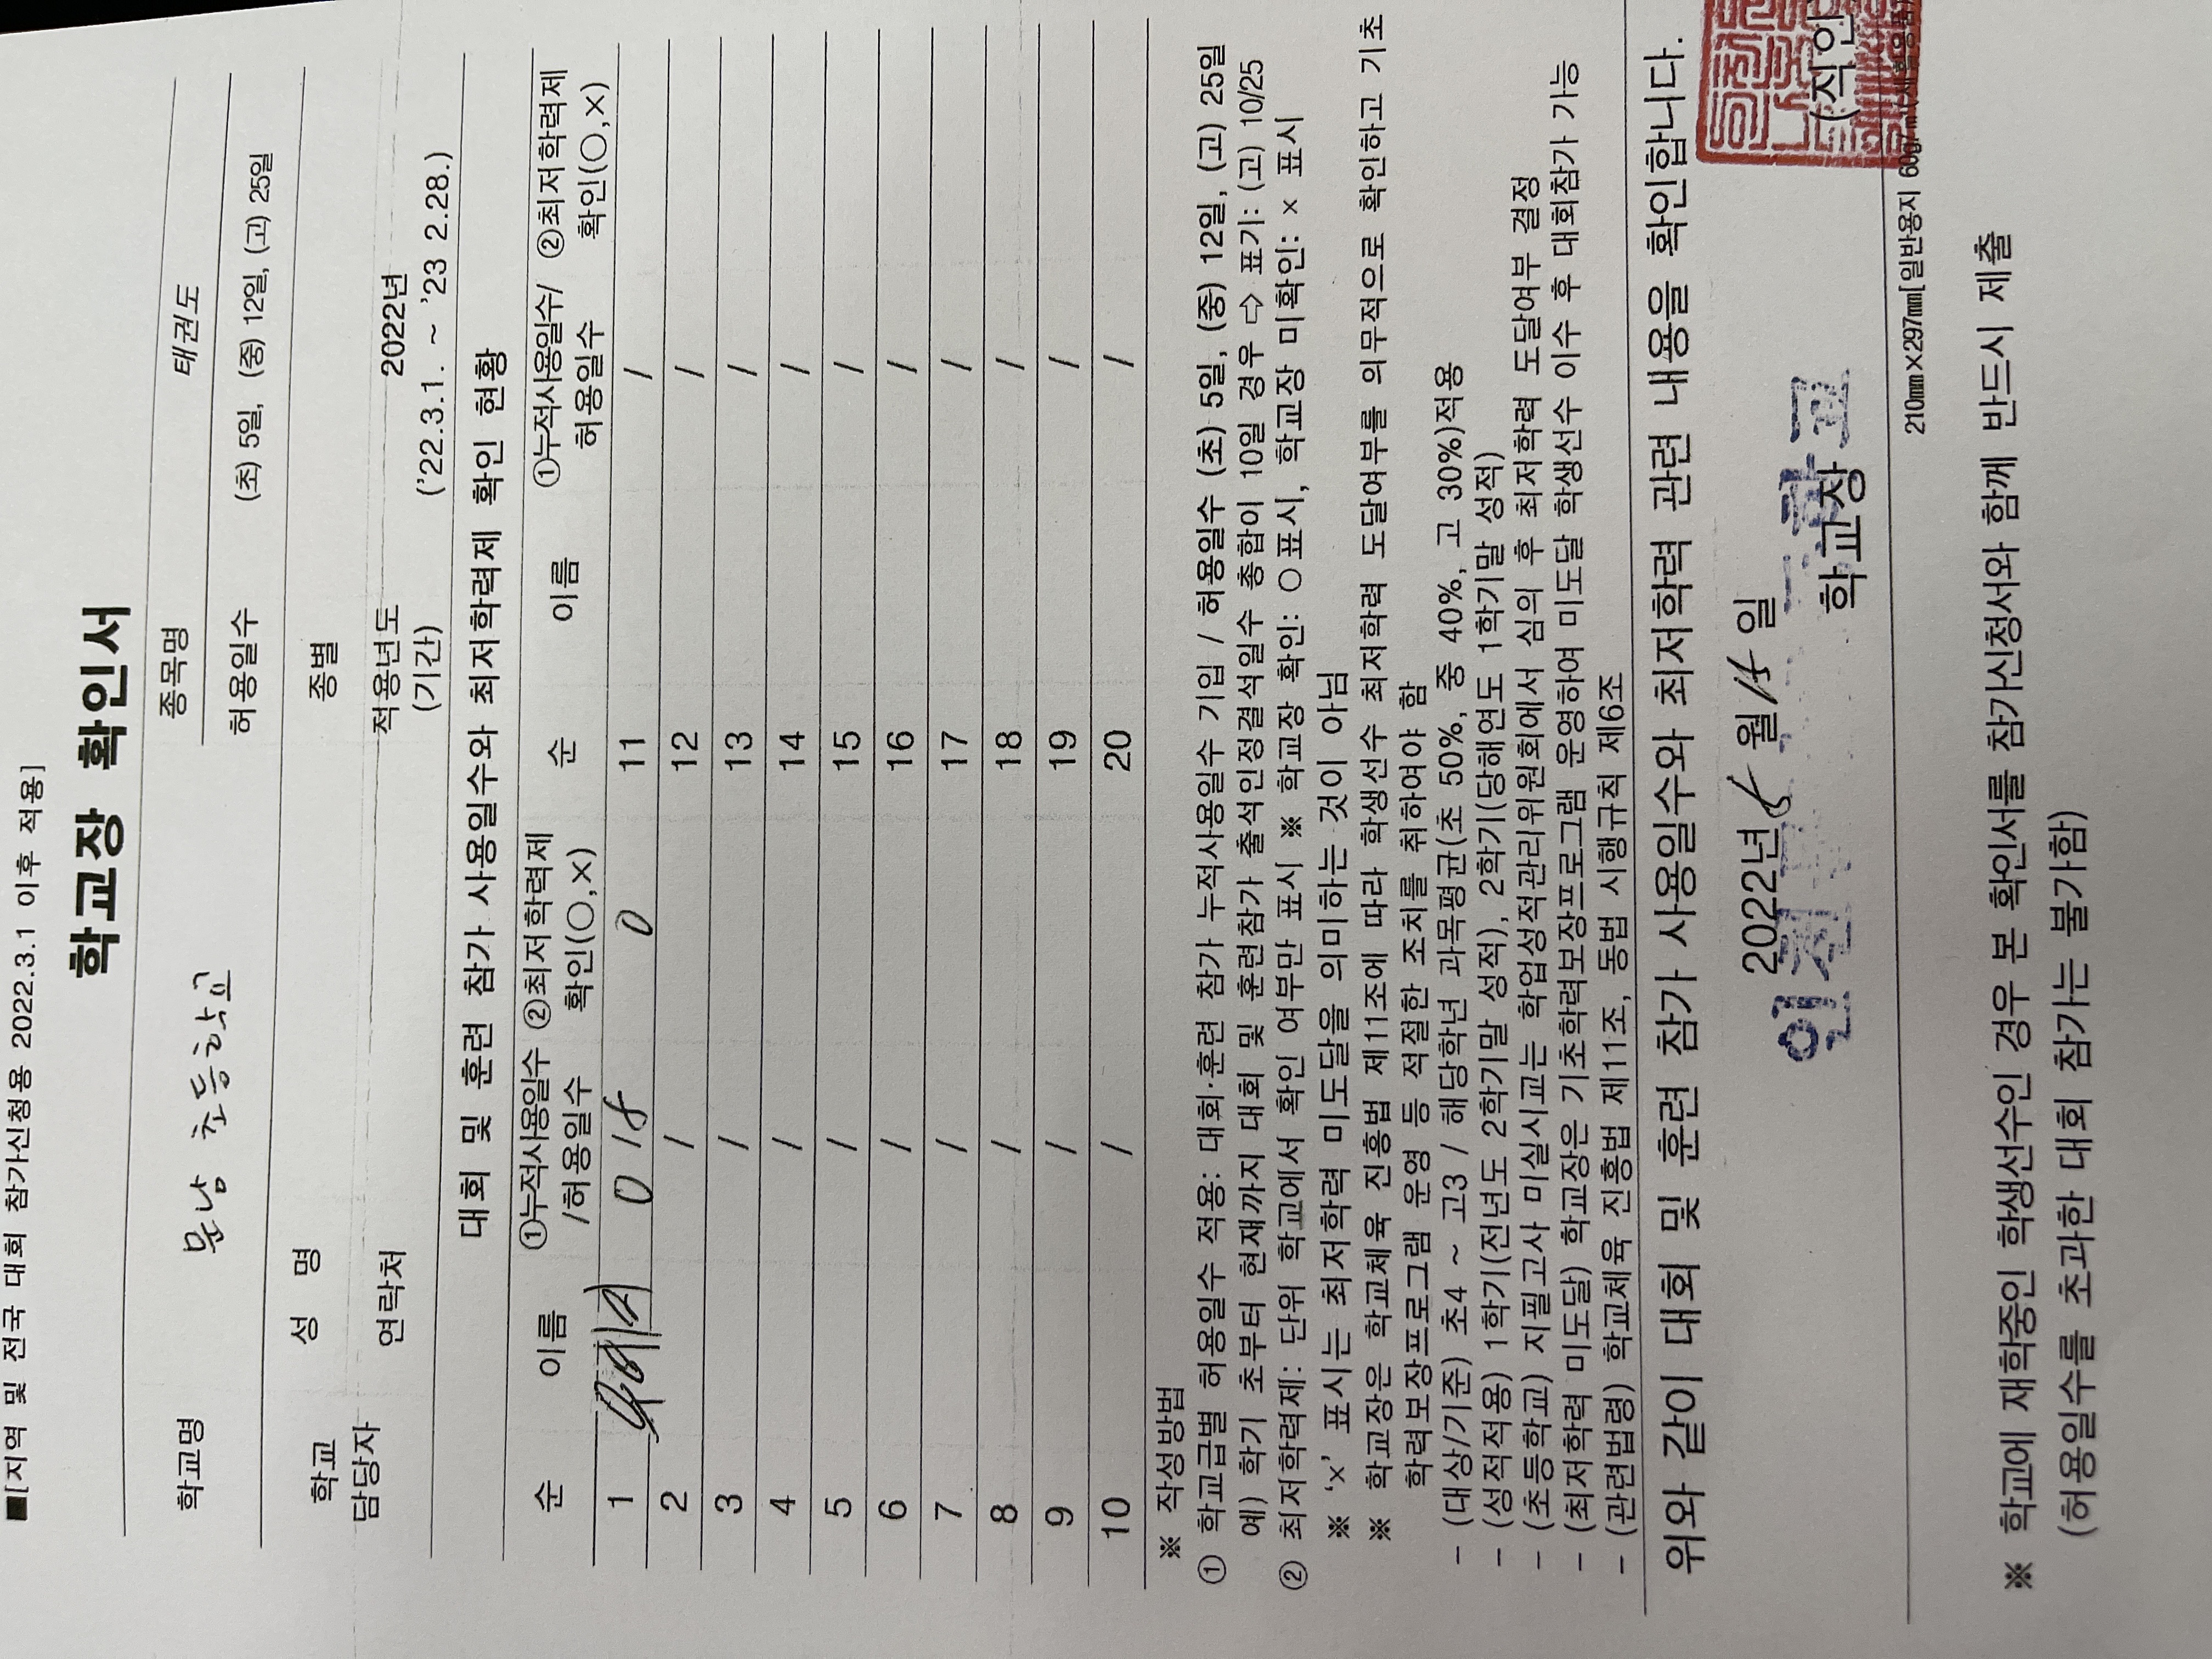 ■[지역 및 전국 대회 참가신청용 2022.3.1 이후 적용]
학교장 확인서
학교명 문남 초등학교 종목명 태권도
허용일수 (초) 5일, (중) 12일, (고) 25일
학교 담당자 성 명 종별
연락처 적용년도 (기간) 2022년 ('22.3.1. ~ '23 2.28.)
대회 및 훈련 참가 사용일수와 최저학력제 확인 현황
순 이름 ①누적사용일수 /허용일수 ②최저학력제 확인(○,×) 순 이름 ①누적사용일수/ 허용일수 ②최저학력제 확인(○,×)
1 0 / 5 0 11 /
2 / 12 /
3 / 13 /
4 / 14 /
5 / 15 /
6 / 16 /
7 / 17 /
8 / 18 /
9 / 19 /
10 / 20 /
※ 작성방법
① 학교급별 허용일수 적용: 대회·훈련 참가 누적사용일수 기입 / 허용일수 (초) 5일, (중) 12일, (고) 25일
예) 학기 초부터 현재까지 대회 및 훈련참가 출석인정결석일수 총합이 10일 경우 ⇨ 표기: (고) 10/25
② 최저학력제: 단위 학교에서 확인 여부만 표시 ※ 학교장 확인: ○표시, 학교장 미확인: × 표시
※ 'x' 표시는 최저학력 미도달을 의미하는 것이 아님
※ 학교장은 학교체육 진흥법 제11조에 따라 학생선수 최저학력 도달여부를 의무적으로 확인하고 기초
학력보장프로그램 운영 등 적절한 조치를 취하여야 함
- (대상/기준) 초4 ~ 고3 / 해당학년 과목평균(초 50%, 중 40%, 고 30%)적용
- (성적적용) 1학기(전년도 2학기말 성적), 2학기(당해연도 1학기말 성적)
- (초등학교) 지필고사 미실시교는 학업성적관리위원회에서 심의 후 최저학력 도달여부 결정
- (최저학력 미도달) 학교장은 기초학력보장프로그램 운영하여 미도달 학생선수 이수 후 대회참가 가능
- (관련법령) 학교체육 진흥법 제11조, 동법 시행규칙 제6조
위와 같이 대회 및 훈련 참가 사용일수와 최저학력 관련 내용을 확인합니다.
2022년 월 일
학교장 (직인)
210㎜×297㎜[일반용지 60g/㎡(재활용품)]
※ 학교에 재학중인 학생선수인 경우 본 확인서를 참가신청서와 함께 반드시 제출
(허용일수를 초과한 대회 참가는 불가함)